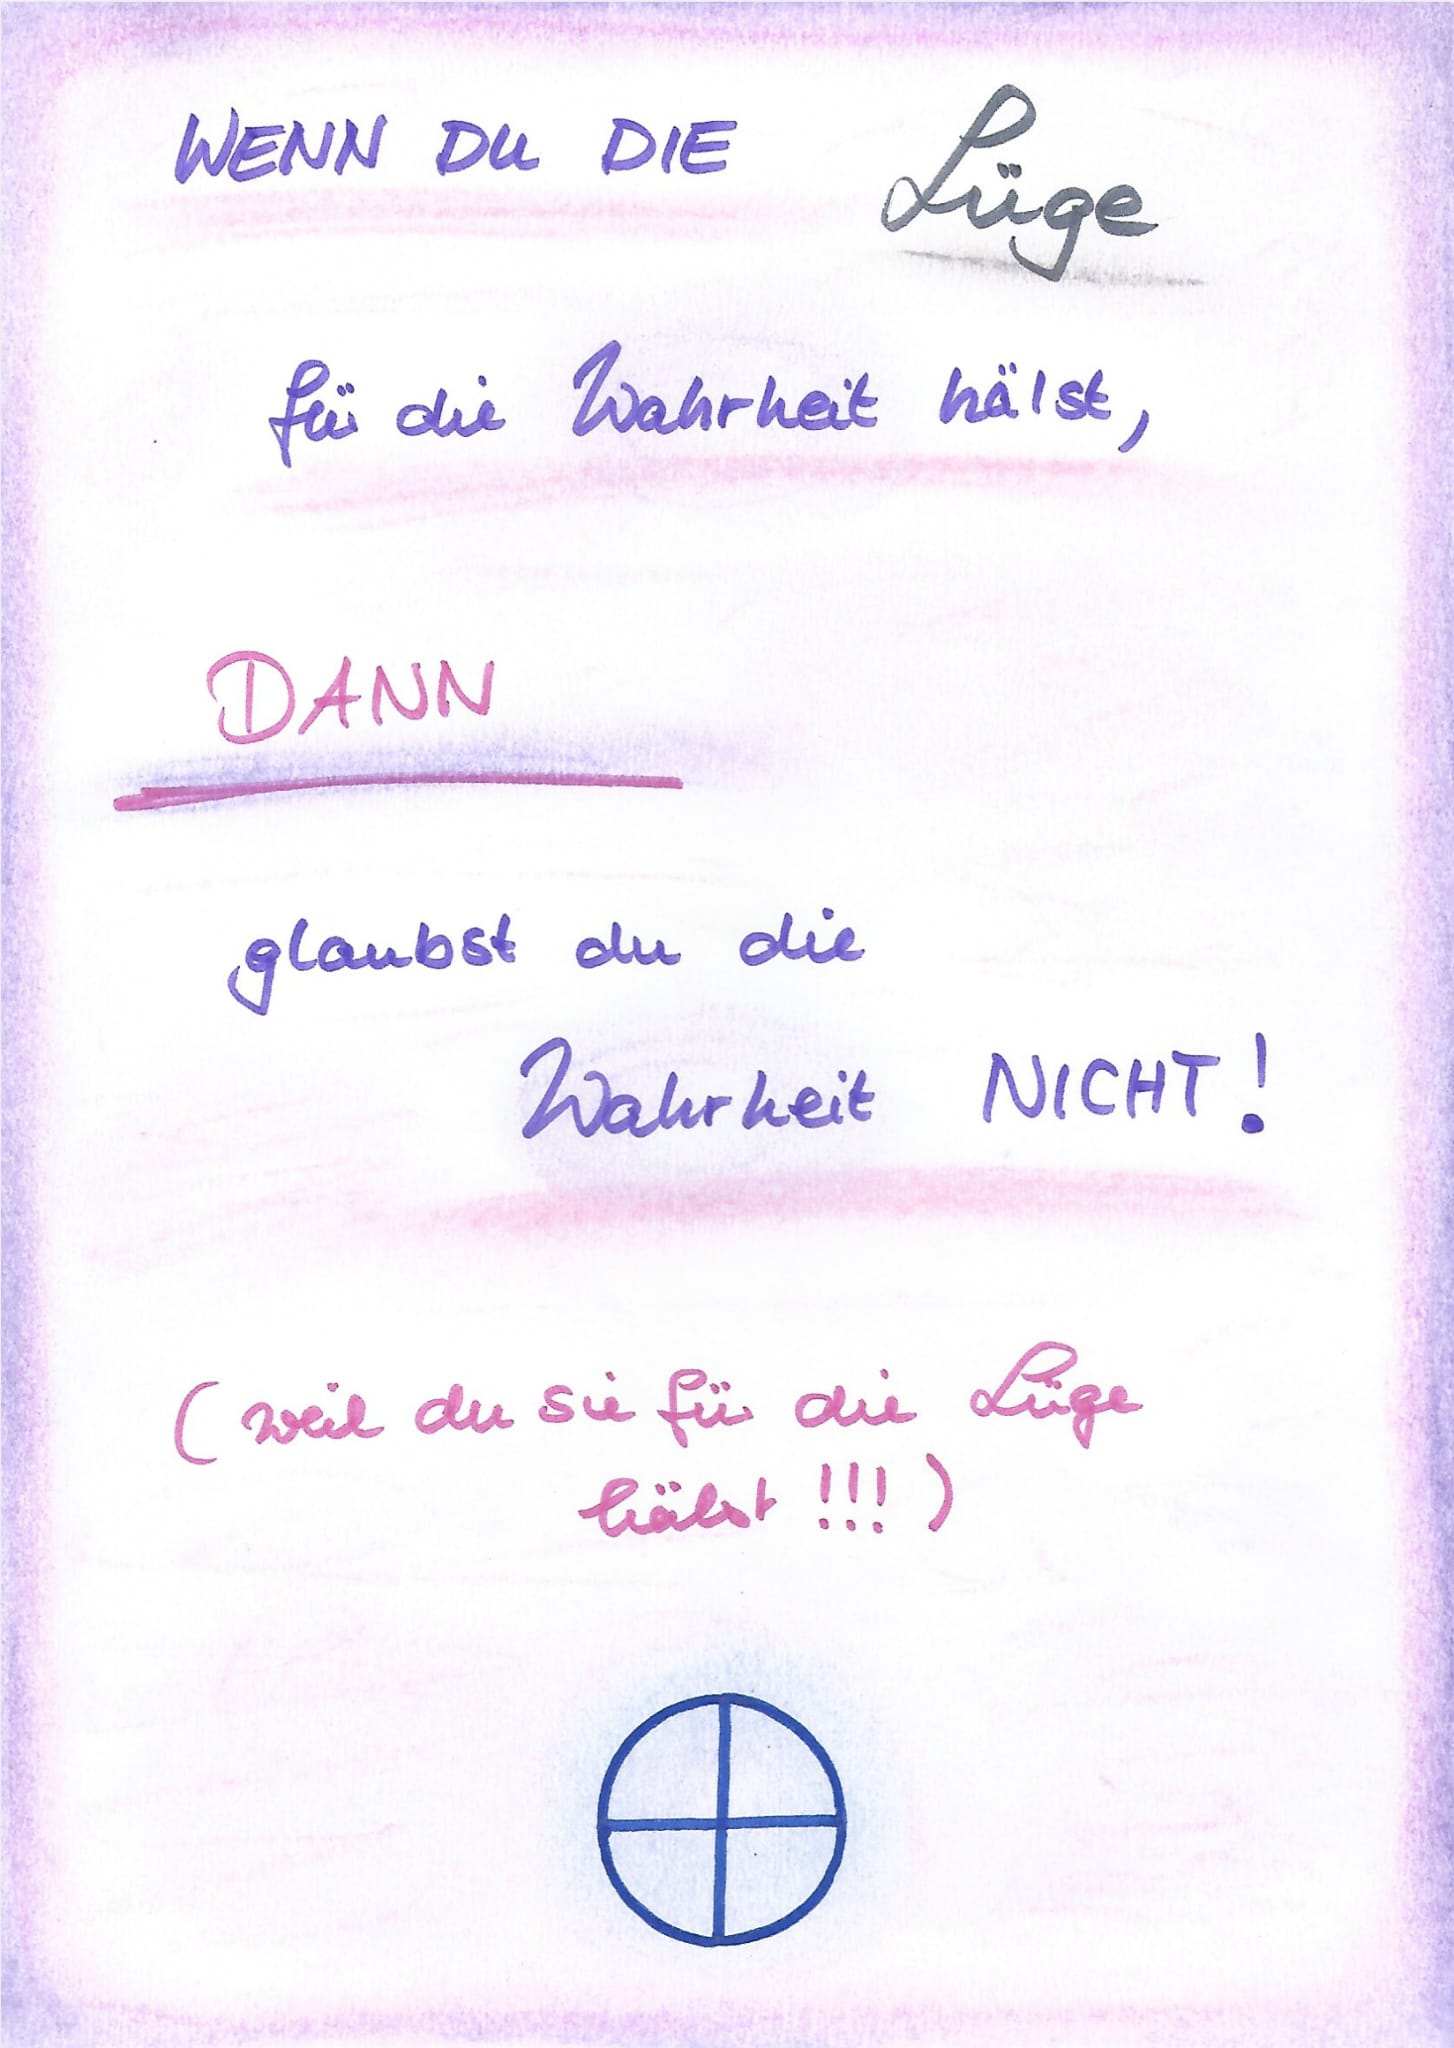 WENN DU DIE Lüge
für die Wahrheit hälst,
DANN
glaubst du die
Wahrheit NICHT!
(weil du sie für die Lüge
hälst!!!)